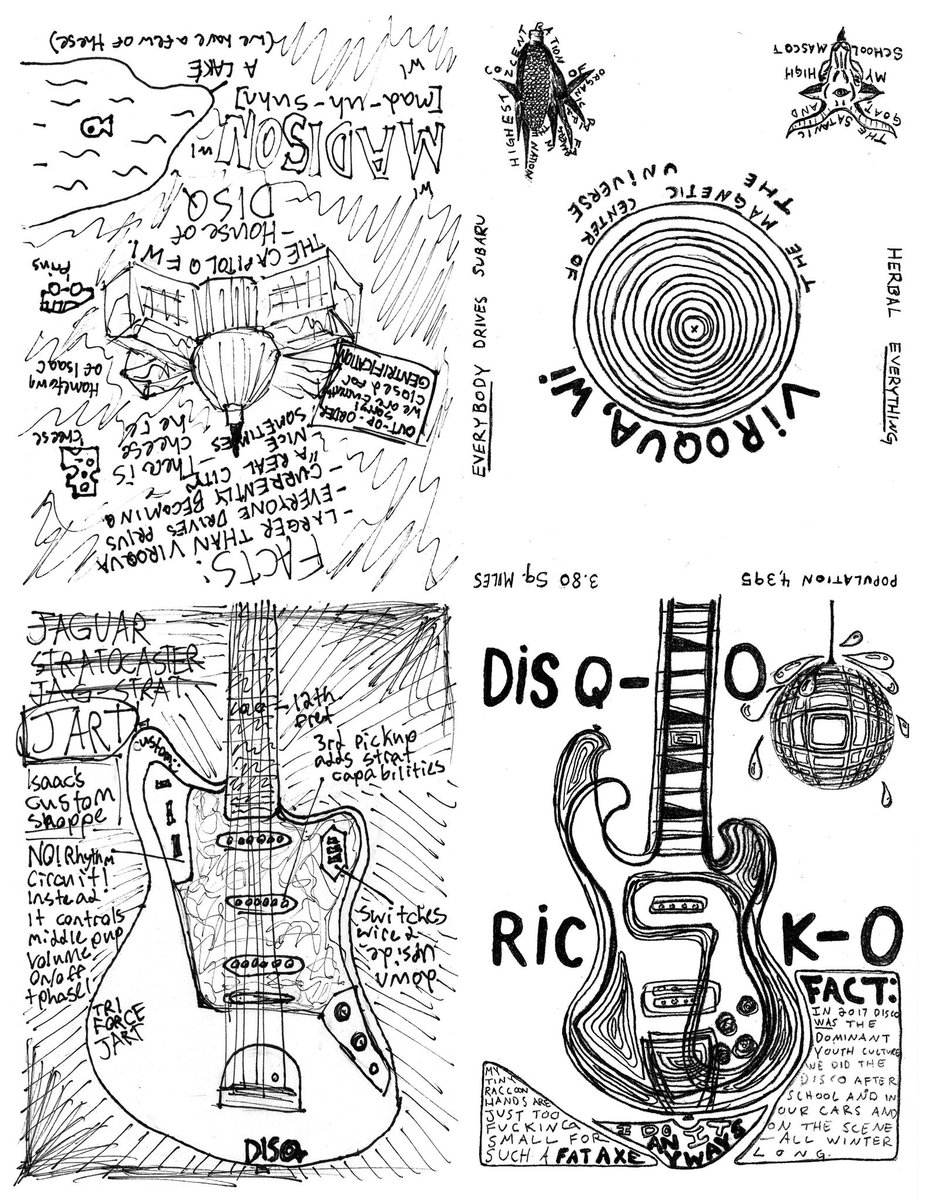 (we have a few of these)
A LAKE
WI
[mad-uh-suhn]
MADISON
WI
WI
DISQ
-House of
THE CAPITOL OF WI
Prius
Hometown
of Isaac
OUT-OF-ORDER!
Sorry!
we are currently
closed for
GENTRIFICATION
cheese
FACTS:
- LARGER THAN VIROQUA
- EVERYONE DRIVES PRIUS
- CURRENTLY BECOMING
"A REAL CITY"
- NICE SOMETIMES
- There is
cheese
here
HIGHEST CONCENTRATION OF
ORGANIC FARMS
IN THE NATION
THE SATANIC
GOAT AND
MY HIGH
SCHOOL MASCOT
THE MAGNETIC CENTER OF
THE UNIVERSE
VIROQUA, WI
EVERYBODY DRIVES SUBARU
HERBAL EVERYTHING
POPULATION 4,395
3.80 Sq. MILES
JAGUAR
STRATOCASTER
JAG-STRAT
JART
custom!
Isaac's
custom
shoppe
NO! Rhythm
circuit!
Instead
it controls
middle pup
volume
on/off
+phase!
TRI
FORCE
JART
12th
fret
3rd pickup
adds strat
capabilities
switches
wired
upside
down
DISQ
DISQ-O
RICK-O
MY
TINY
RACCOON
HANDS ARE
JUST TOO
FUCKING
SMALL FOR
SUCH A FAT AXE
I DO IT
ANYWAYS
FACT:
IN 2017 DISCO
WAS THE
DOMINANT
YOUTH CULTURE
WE DID THE
DISCO AFTER
SCHOOL AND IN
OUR CARS AND
ON THE SCENE
- ALL WINTER
LONG.